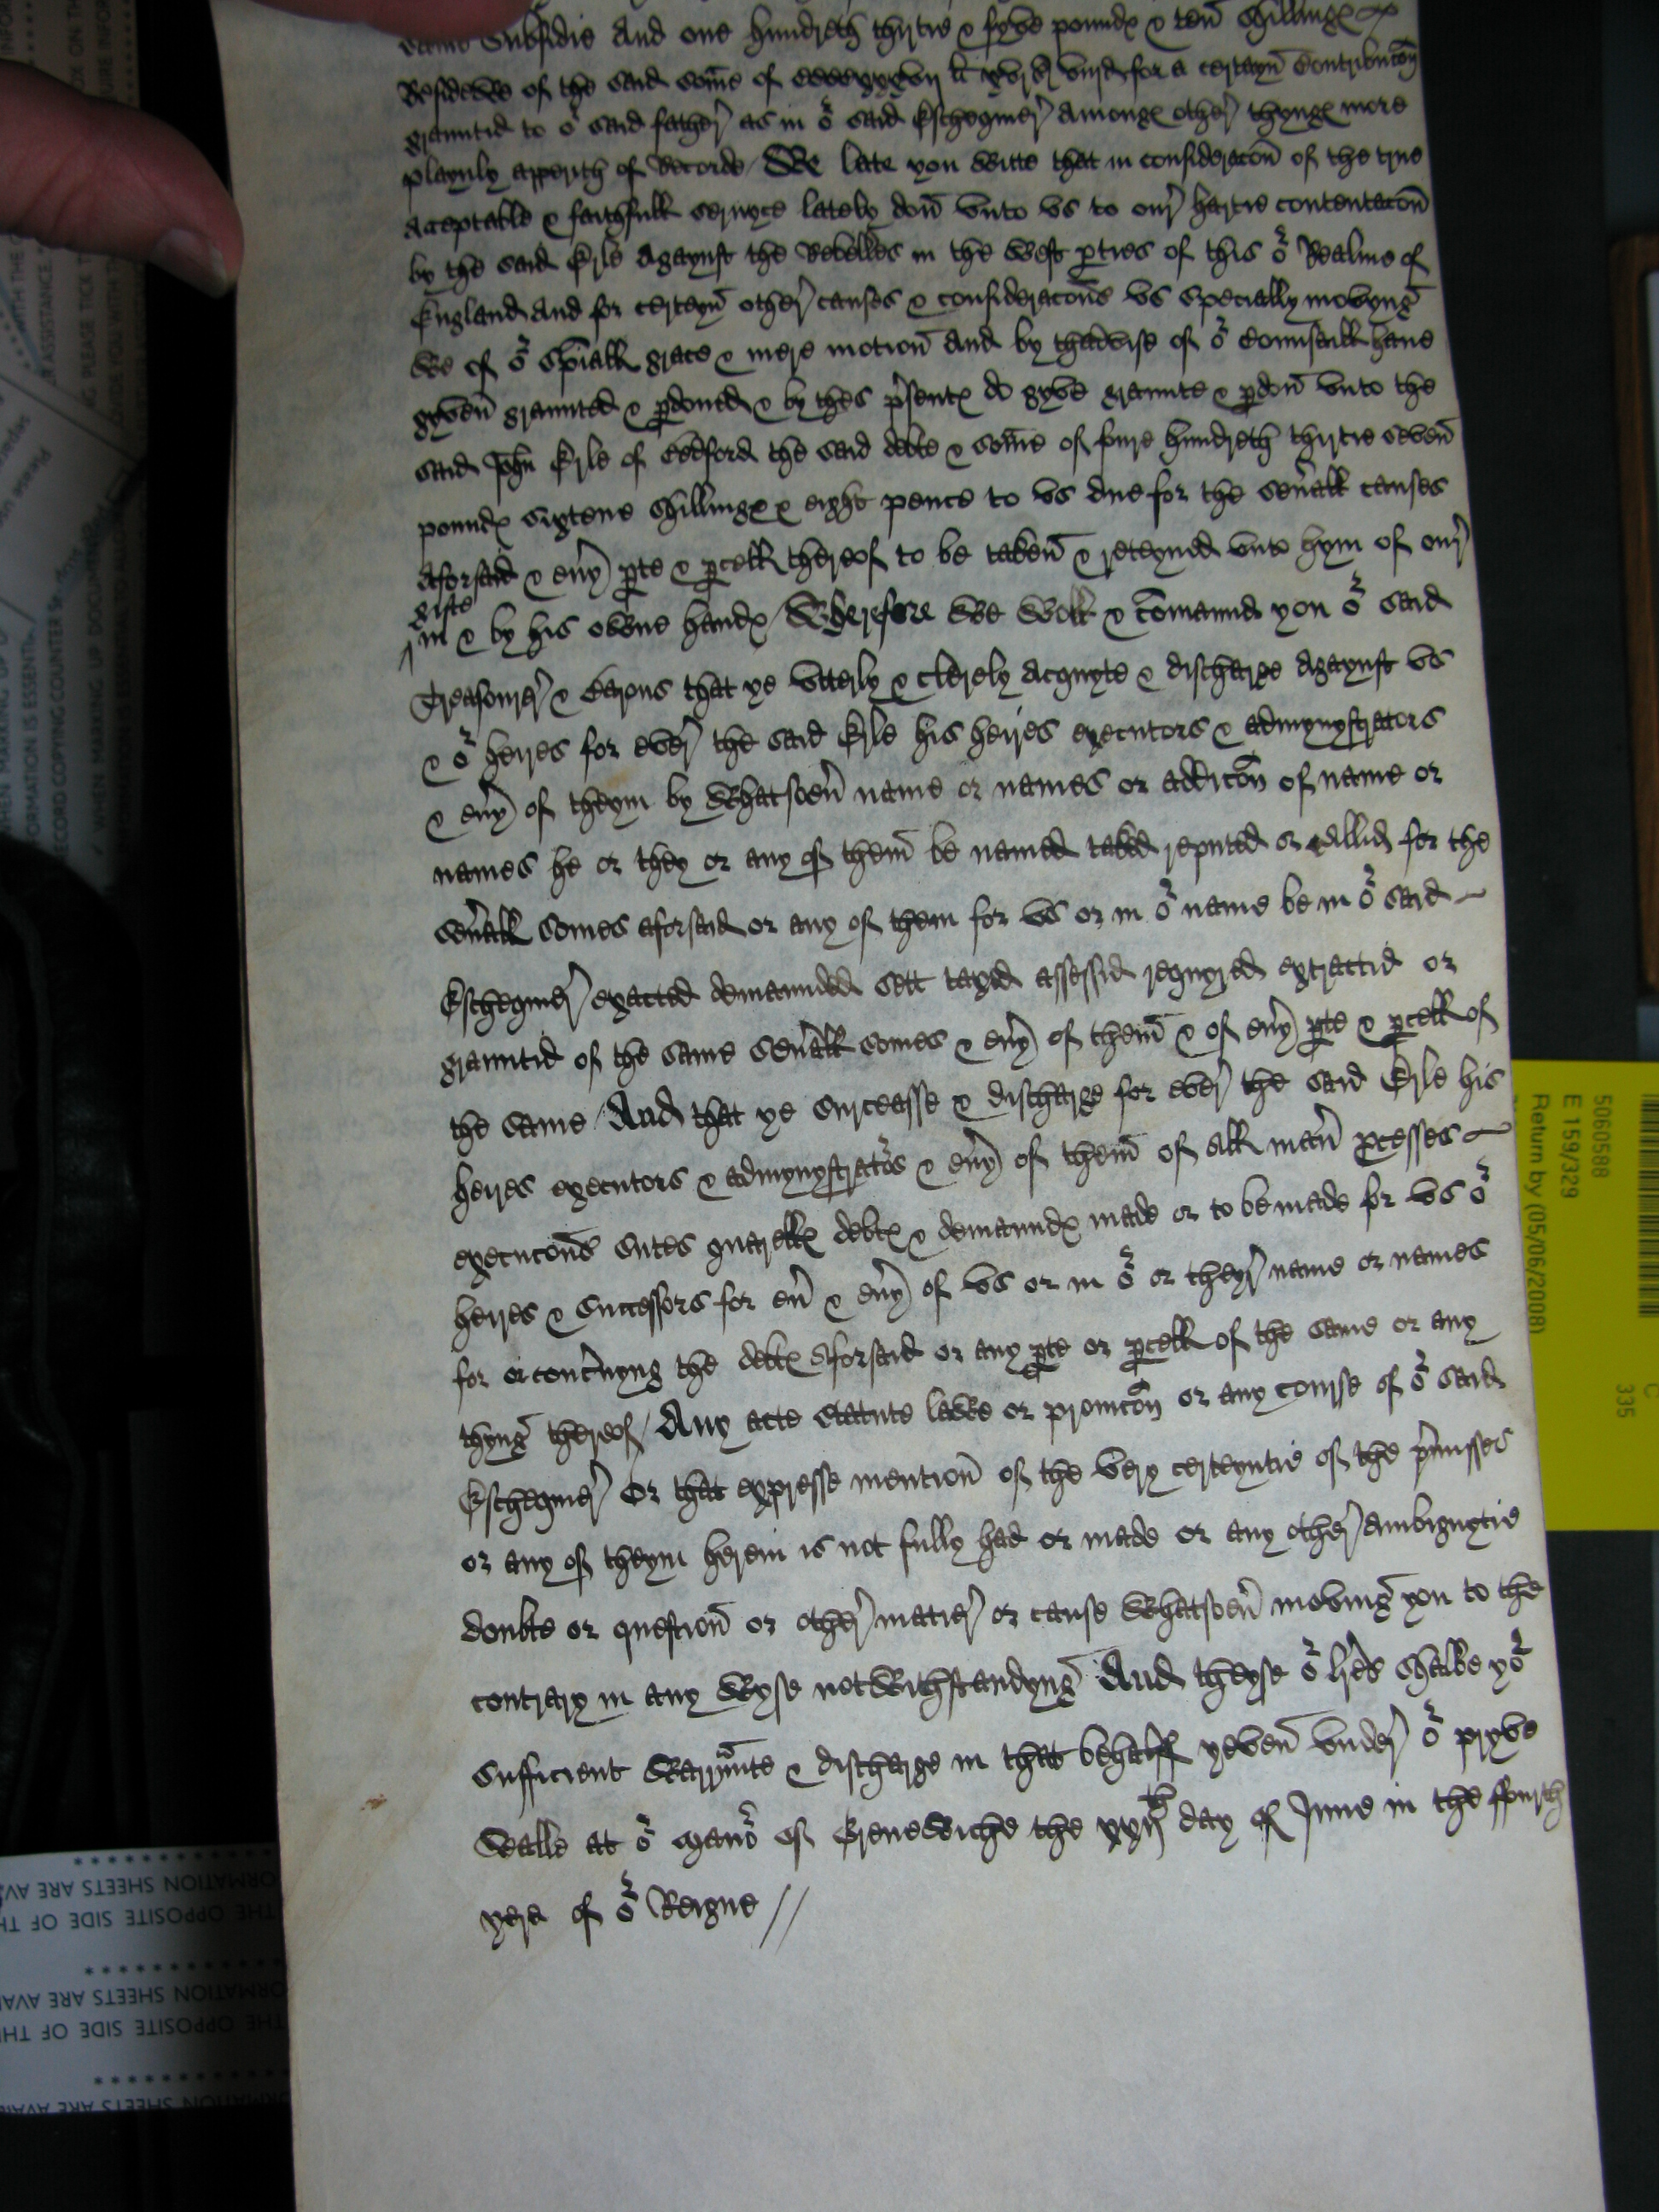 same Subsidie And one hundreth thirtie & fyve poundꝭ & ten̄ shillingꝭ
Residewe of the said som̄e of ccccxxxvij li xvj s̃ viij d for a certayn̄ Contribuc̃on
grauntid to oʳ said father as in oʳ said Eschequier Amongꝭ other thyngꝭ more
playnly apperith of Recorde / We late you witte that in considerac̃on of the true
acceptable & faithfull seruyce lately don̄ vnto vs to our hartie contentac̃on
by the said Erle Agaynst the Rebelles in the west ꝑties of this oʳ Realme of
England And for certeyn̄ other causes & considerac̃ons vs specially movyng
We of oʳ sp̄iall grace & mere motion̄ And by thadvise of oʳ Counsaill haue
gyven̄ graunted & ꝑdoned & by thes p̃sentꝭ do gyve graunte & ꝑdon̄ vnto the
said John̄ Erle of Bedford the said debte & som̄e of foure hundreth thirtie seven̄
poundꝭ sixtene shillingꝭ & eight pence to vs due for the seũall causes
Aforsaid & eũy ꝑte & ꝑcell thereof to be taken̄ & reteyned vnto hym of our
gifte
^in & by his owne handꝭ / Wherefore We Woll & com̄aund you oʳ said
Treasourer & Barons that ye vtterly & clerely Acquyte & discharge Agaynst vs
& oʳ heires for ever the said Erle his heires executors & admynystrators
& eũy of theym by Whatsoeũ name or names or addic̃on of name or
names he or they or any of them̄ be named taked reputed or callid for the
seũall somes aforsaid or any of them for vs or in oʳ name be in oʳ said
Eschequier exacted demaunded sett taxed assessid requyred extractid or
grauntid of the same seũall somes & eũy of them̄ & of eũy ꝑte & ꝑcell of
the same / And that ye surceasse & discharge for ever the said Erle his
heires executors & admynystratoʳs & eũy of them̄ of all mañ ꝓcesses
execuc̃ons sutes quarellꝭ debtꝭ & demaundꝭ made or to be made for vs oʳ
heires & successors for eũ & eũy of vs or in oʳ or theyr name or names
for or conc̃nyng the debtꝭ Aforsaid or any ꝑte or ꝑcell of the same or any
thyng thereof / Any acte statute lawe or prouic̃on or any course of oʳ said
Eschequier Or that expresse mention̄ of the very certeyntie of the p̃misses
or any of theym herein is not fully had or made or any other Ambiguytie
doubte or question̄ or other matier or cause Whatsoeũ moving you to the
contrary in any Wyse notwithstandyng And theyse oʳ lr̃es shalbe yoʳ
sufficient Warrãnte & discharge in that behalff yeven̄ vnder oʳ pryve
Sealle at oʳ Manoʳ of Grenewiche the xxijᵗʰ day of June in the ffourth
yere of oʳ Reigne //
5060588
E 159/329
Return by (05/06/2008)
335